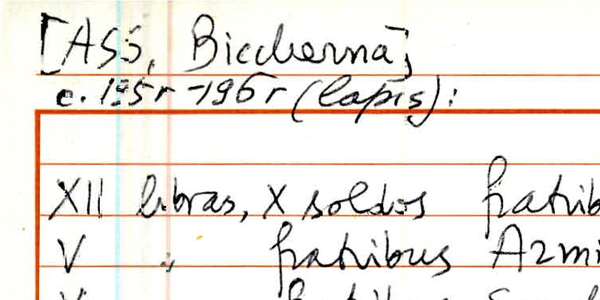 [ASS, Biccherna]
c. 195r-196r (lapis):
XII libras, X soldos fratrib
V " fratribus Azmi